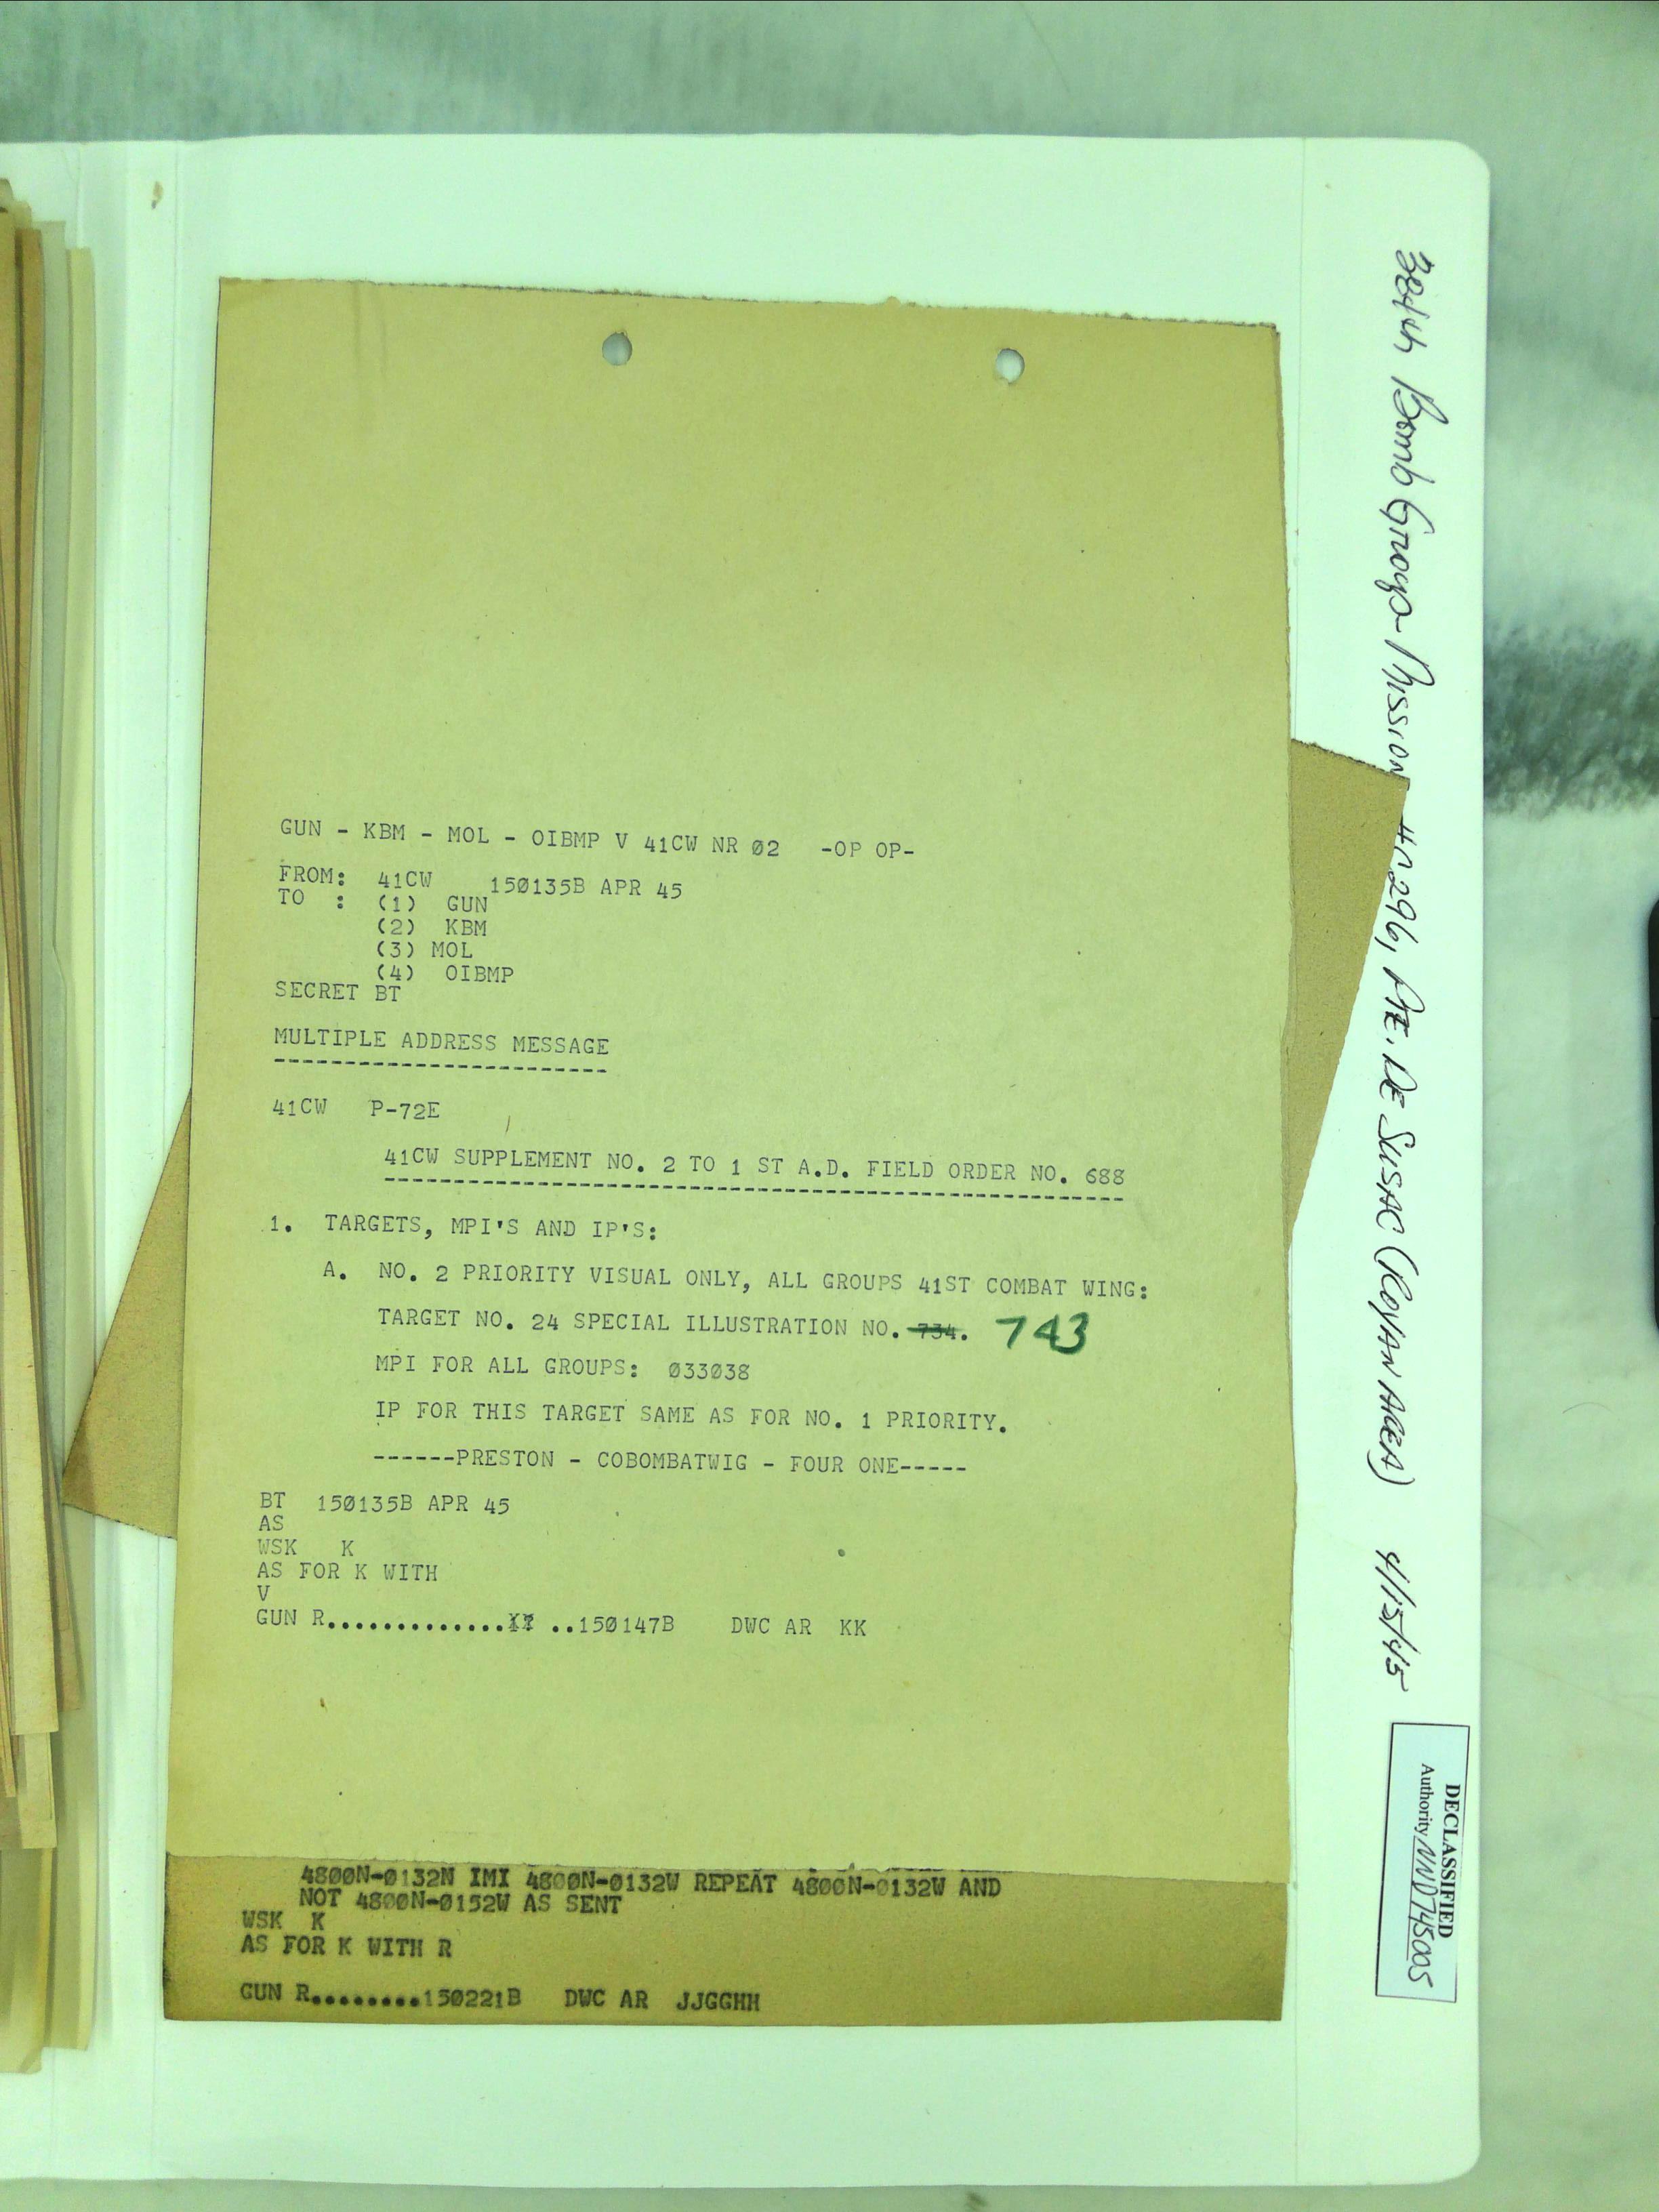 GUN - KBM - MOL - OIBMP V 41CW NR Ø2 -OP OP-
FROM: 41CW 15Ø135B APR 45
TO : (1) GUN
(2) KBM
(3) MOL
(4) OIBMP
SECRET BT
MULTIPLE ADDRESS MESSAGE
------------------------
41CW P-72E
41CW SUPPLEMENT NO. 2 TO 1 ST A.D. FIELD ORDER NO. 688
------------------------------------------------------
1. TARGETS, MPI'S AND IP'S:
A. NO. 2 PRIORITY VISUAL ONLY, ALL GROUPS 41ST COMBAT WING:
TARGET NO. 24 SPECIAL ILLUSTRATION NO. 734. 743
MPI FOR ALL GROUPS: Ø33Ø38
IP FOR THIS TARGET SAME AS FOR NO. 1 PRIORITY.
------PRESTON - COBOMBATWIG - FOUR ONE-----
BT 15Ø135B APR 45
AS
WSK K
AS FOR K WITH
V
GUN R............. ..15Ø147B DWC AR KK
48ØØN-Ø132N IMI 48ØØN-Ø132W REPEAT 48ØØN-Ø132W AND
NOT 48ØØN-Ø152W AS SENT
WSK K
AS FOR K WITH R
GUN R........15Ø221B DWC AR JJGGHH
384th Bomb Group Mission #296, Pte. De Susac (Royan Area) 4/15/45
DECLASSIFIED
Authority NND745005